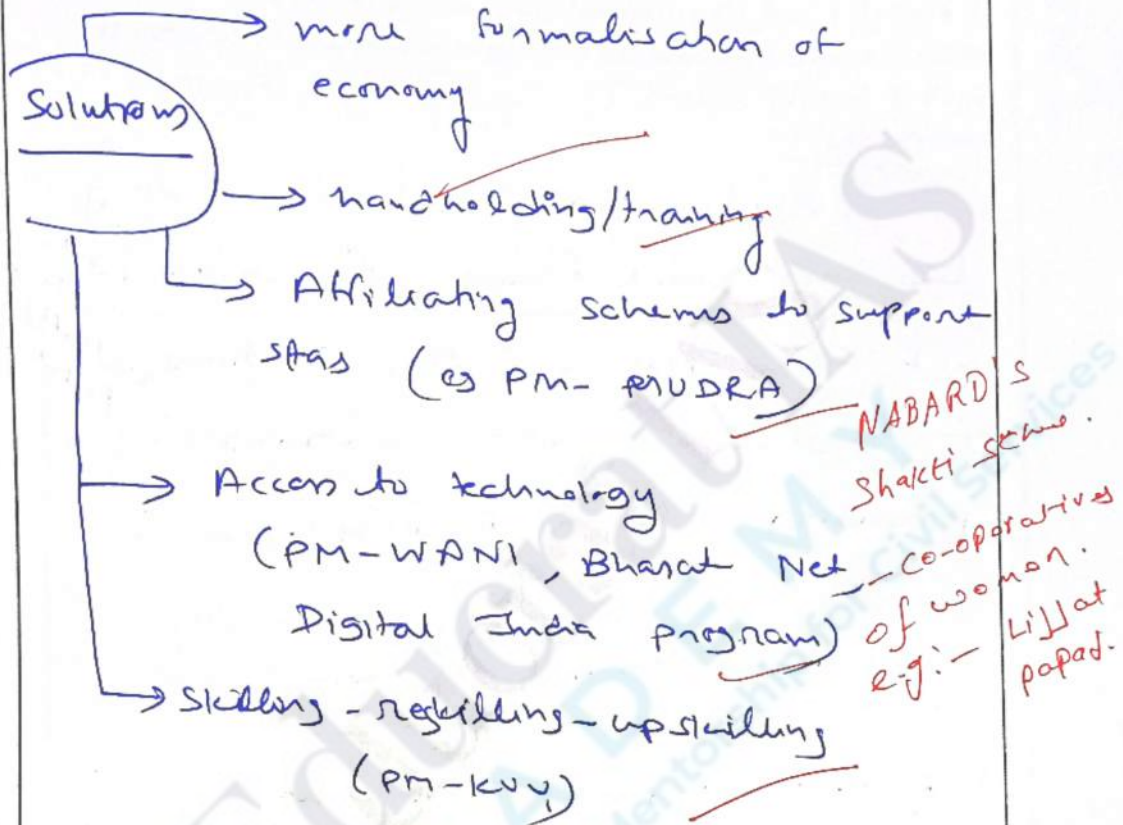 more formalisation of
economy
Solutions
handholding/training
Affiliating schems to support
(eg PM- MUDRA)
NABARD's
Shakti scheme.
Access to technology
(PM-WANI, Bharat Net
Digital India program)
- co-operatives
of women.
e.g:- Lijjat
papad.
Skilling - reskilling - upskilling
(PM-KVY)
EducratIAS
ACADEMY
Mentorship for Civil Services